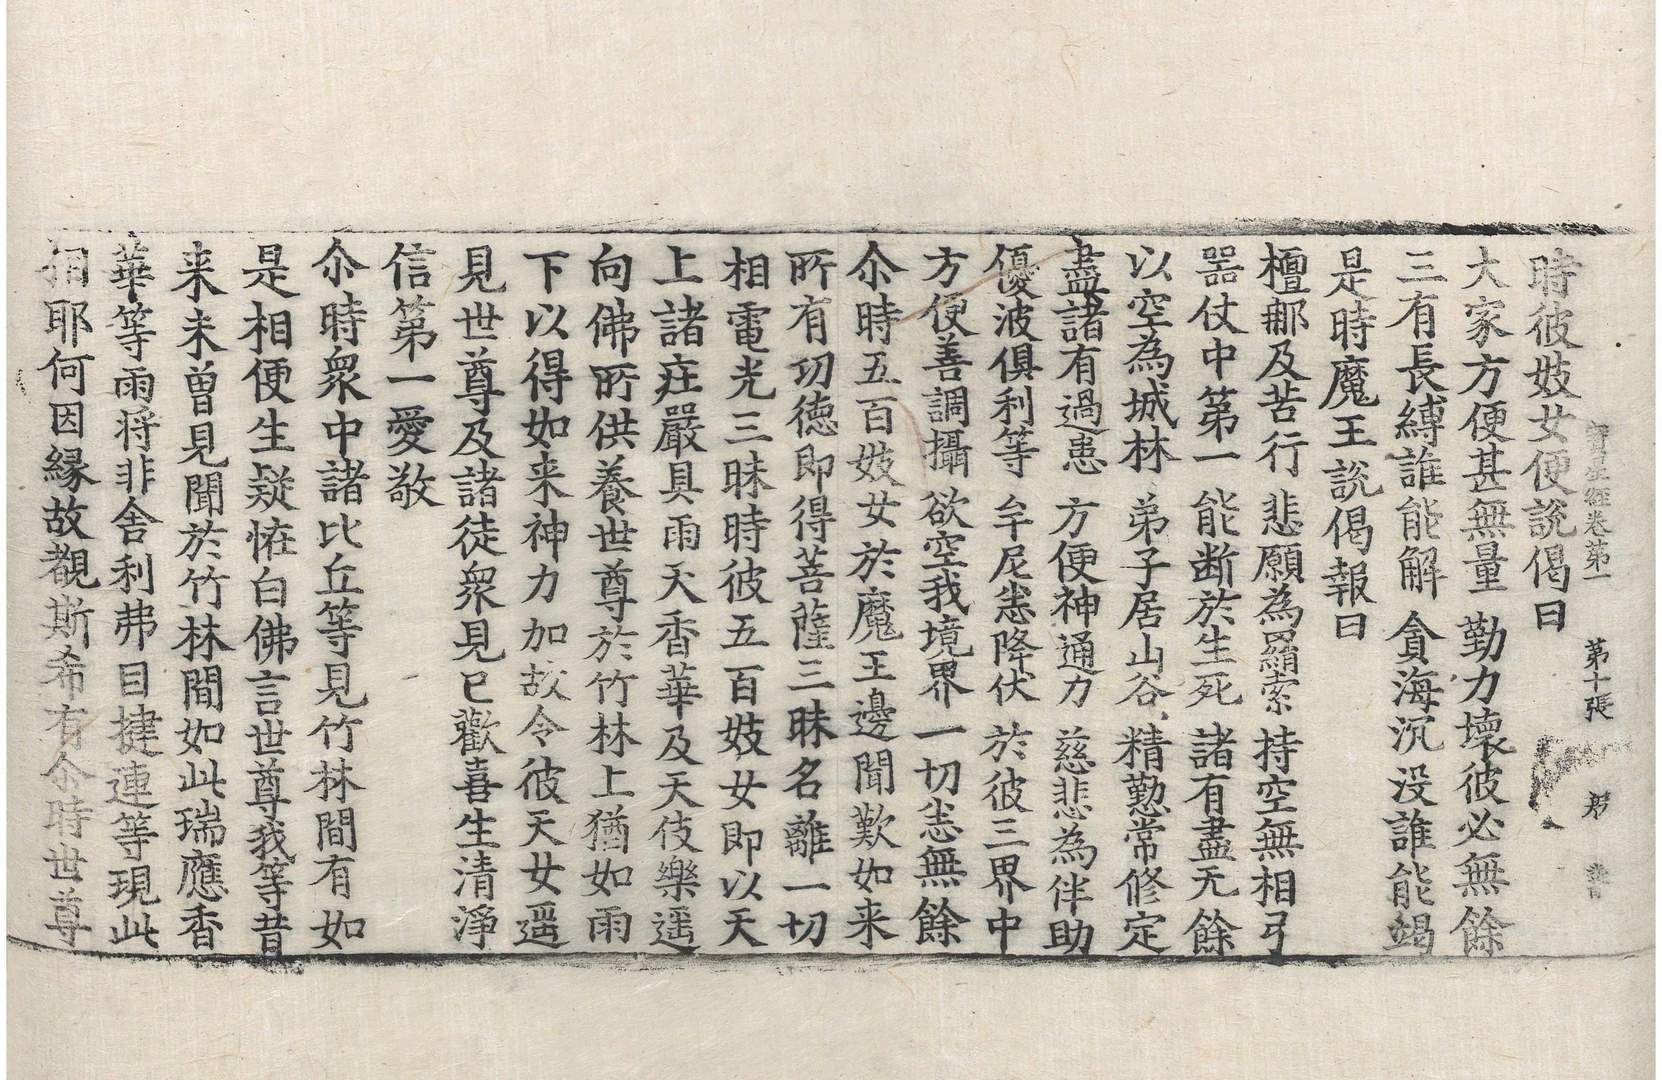 寶星經卷第一 第十張
時彼妓女便說偈曰
大家方便甚無量 勤力壞彼必無餘
三有長縛誰能解 貪海沉没誰能竭
是時魔王說偈報曰
檀那及苦行 悲願為羂索 持空無相弓
器仗中第一 能断於生死 諸有盡无餘
以空為城林 弟子居山谷 精懃常修定
盡諸有過患 方便神通力 慈悲為伴助
優波俱利等 牟尼悉降伏 於彼三界中
方便善調攝 欲空我境界 一切悉無餘
尒時五百妓女於魔王邊聞歎如来
所有功徳即得菩薩三昧名離一切
相電光三昧時彼五百妓女即以天
上諸莊嚴具雨天香華及天伎樂遥
向佛所供養世尊於竹林上猶如雨
下以得如来神力加故令彼天女遥
見世尊及諸徒衆見已歡喜生清淨
信第一愛敬
尒時衆中諸比丘等見竹林間有如
是相便生疑恠白佛言世尊我等昔
来未曾見聞於竹林間如此瑞應香
華等雨将非舍利弗目揵連等現此
相耶何因縁故覩斯希有尒時世尊